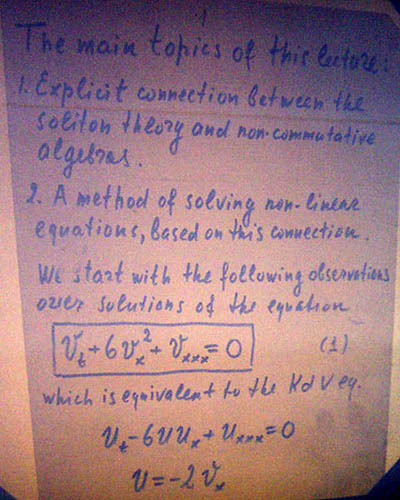 1
The main topics of this lecture:
1. Explicit connection between the
soliton theory and non-commutative
algebras.
2. A method of solving non-linear
equations, based on this connection.
We start with the following observations
over solutions of the equation
V_t + 6V_x^2 + V_xxx = 0 (1)
which is equivalent to the KdV eq.
U_t - 6UU_x + U_xxx = 0
U = -2V_x